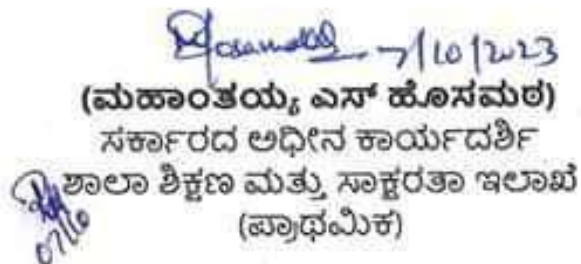 7/10/2023
(ಮಹಾಂತಯ್ಯ ಎಸ್ ಹೊಸಮಠ)
ಸರ್ಕಾರದ ಅಧೀನ ಕಾರ್ಯದರ್ಶಿ
ಶಾಲಾ ಶಿಕ್ಷಣ ಮತ್ತು ಸಾಕ್ಷರತಾ ಇಲಾಖೆ
(ಪ್ರಾಥಮಿಕ)
07/10